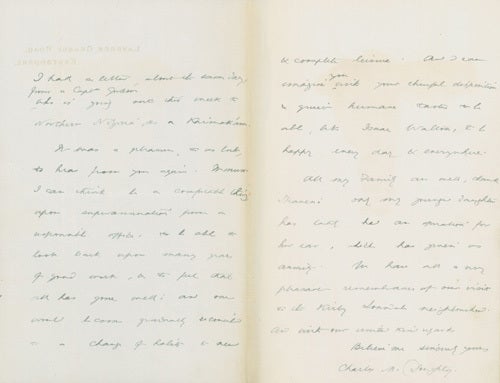 I had a letter, about the same day,
from a Captn
who is going out this week to
Northern Nigeria as a Kaimakam.
It was a pleasure, to us both,
to hear from you again. It must
I can think be a complete thing
upon superannuation from a
responsible office, to be able to
look back upon many years
of good work, & to feel that
all has gone well: and one
would become gradually reconciled
to a change of habits & new
& complete leisure. And I can
imagine you with your cheerful disposition
& quiet humane tastes to be
able, like Isaac Walton, to be
happy every day & everywhere.
All my Family are well, thank
my younger daughter
has lately had an operation for
her ear, which has given us
anxiety. We have all a very
pleasant remembrance of our visit
to the Kirby Lonsdale neighbourhood
And with our united kind regards
Believe me sincerely yours
Charles M. Doughty